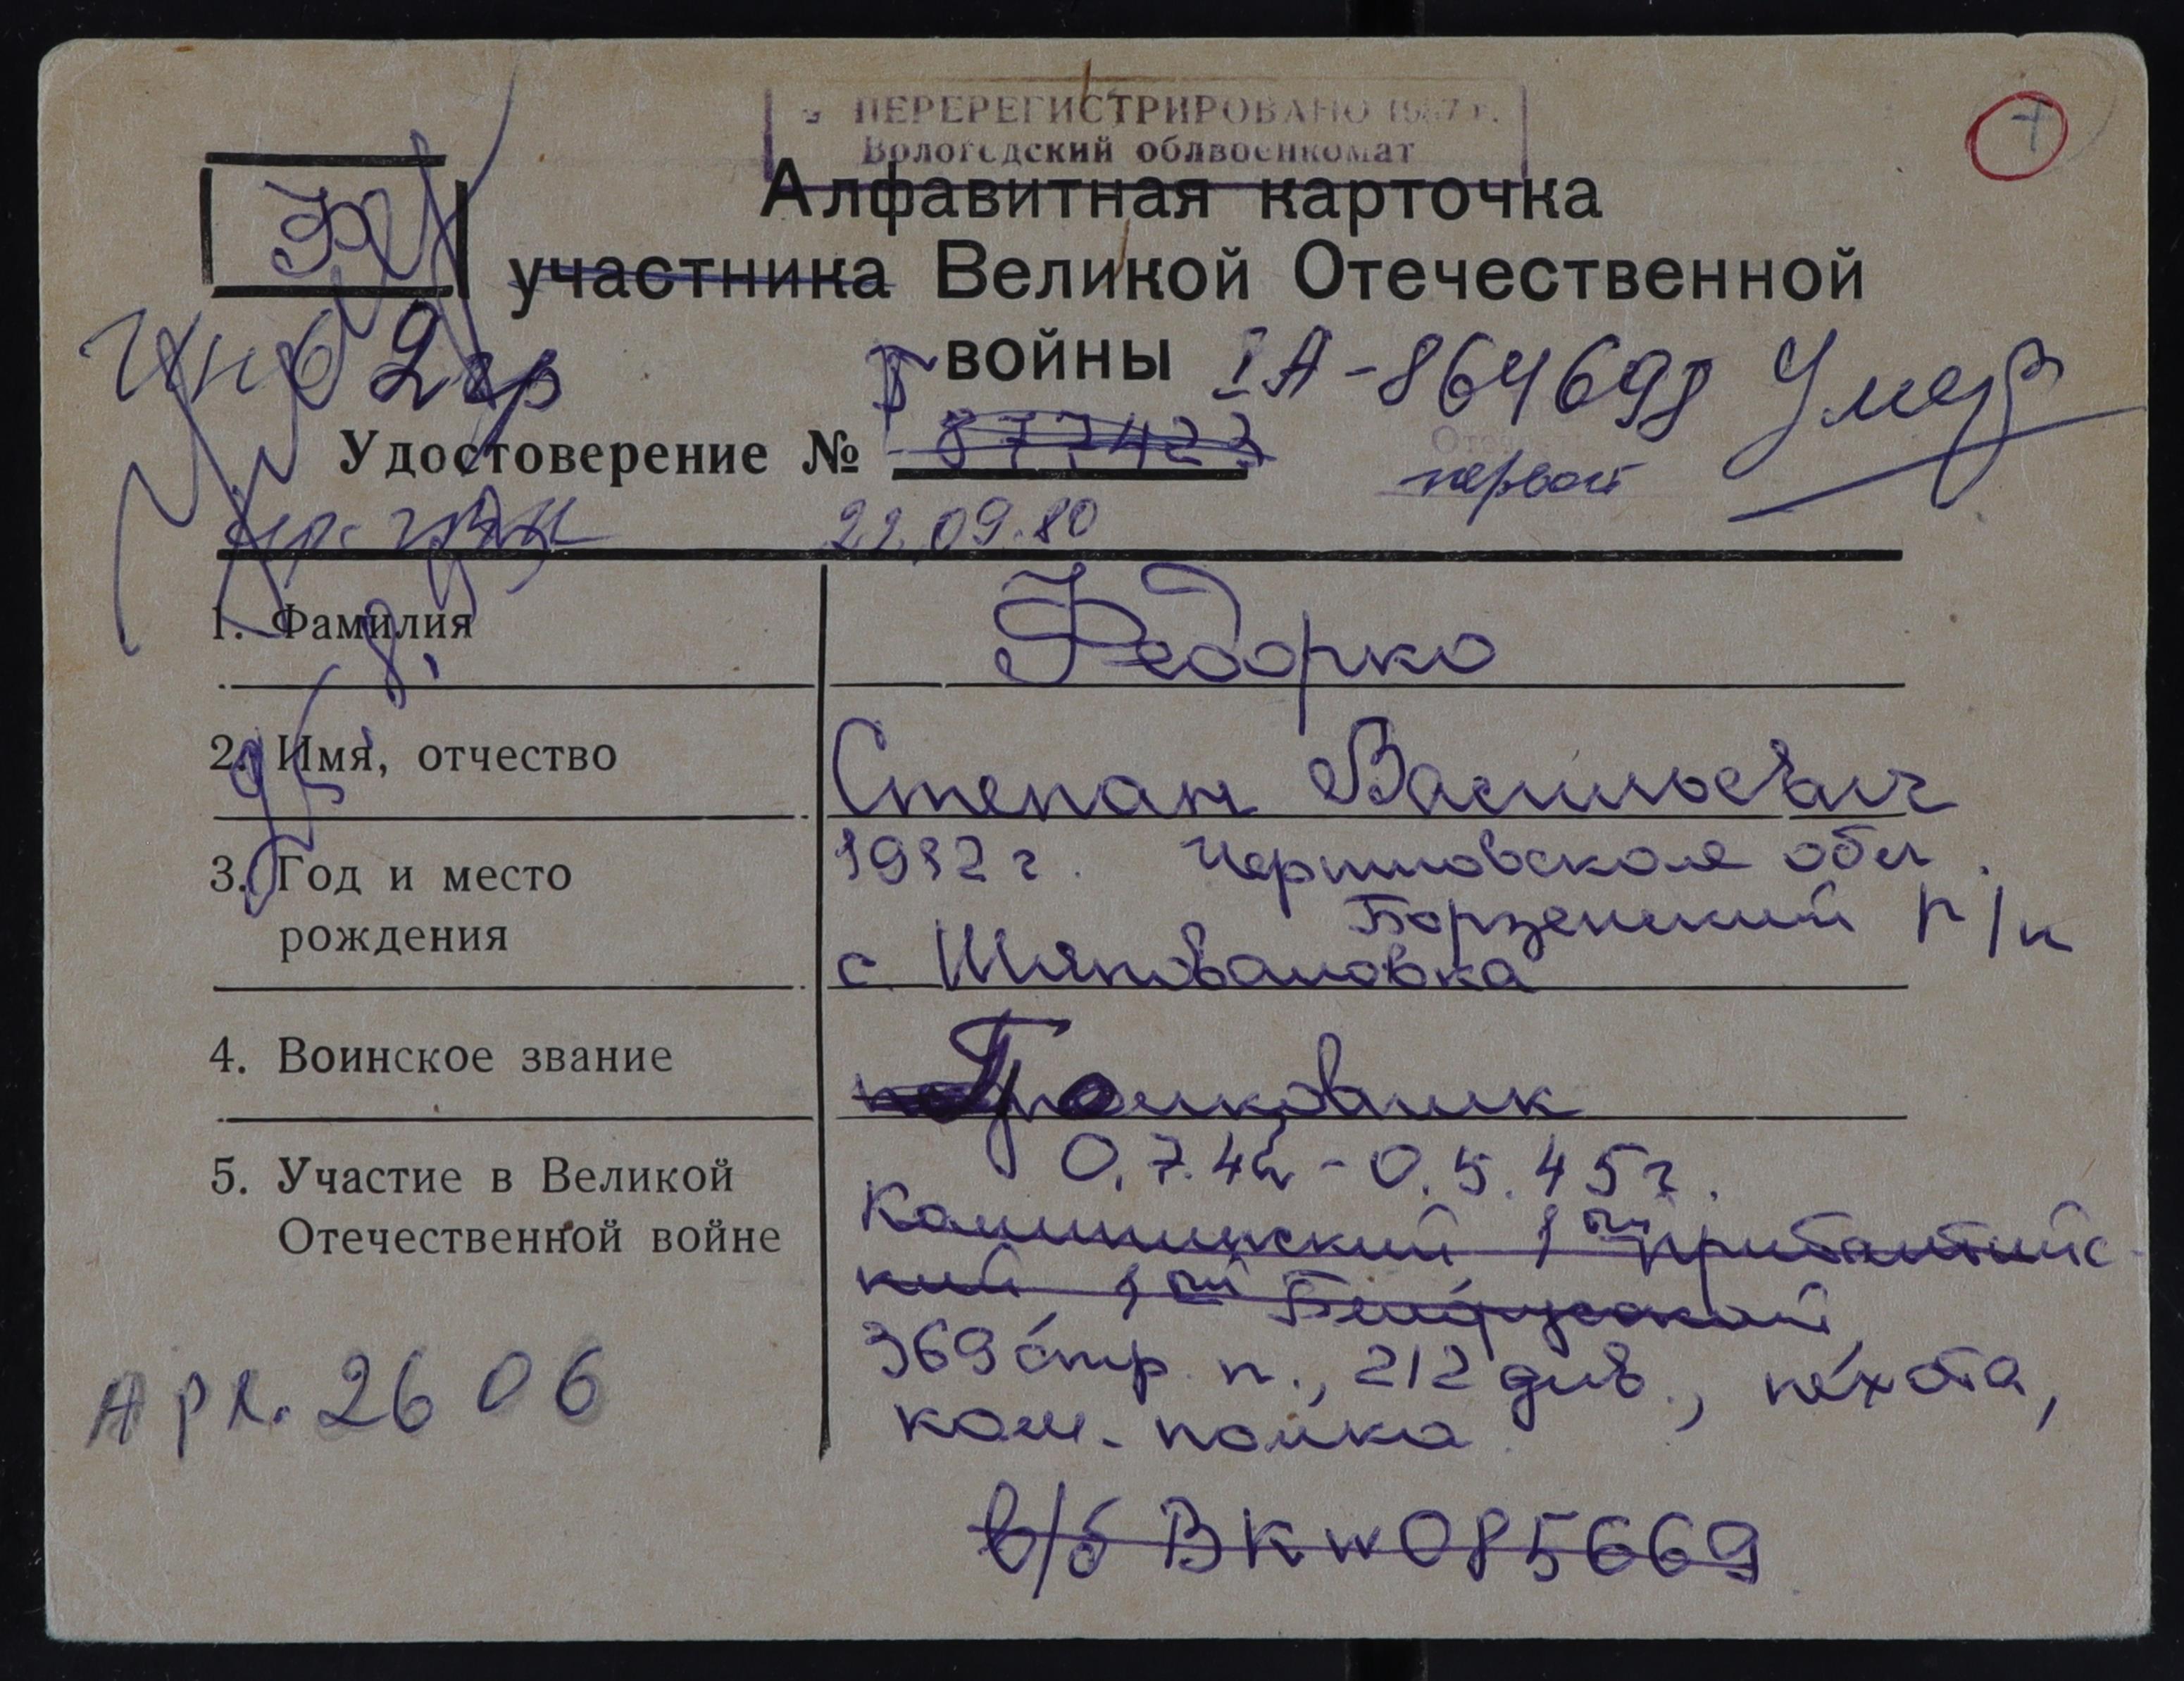 ПЕРЕРЕГИСТРИРОВАНО 1987 г.
Вологодский облвоенкомат
Ф
Алфавитная карточка
участника Великой Отечественной
войны IА-864698 Умер
Инв 2 гр
Удостоверение № 877423
первой
22.09.80
1. Фамилия Федорко
2. Имя, отчество Степан Васильевич
3. Год и место рождения 1912 г. Черниговская обл.
Борзенский р/н
с Шаповаловка
4. Воинское звание Полковник
5. Участие в Великой Отечественной войне 0.7.42-0.5.45г.
Калининский 1ый Прибалтийс-
кий 1ый Белорусский
369 стр. п., 212 див., пехота,
ком. полка
Арх. 2606
в/б ВК № 085669